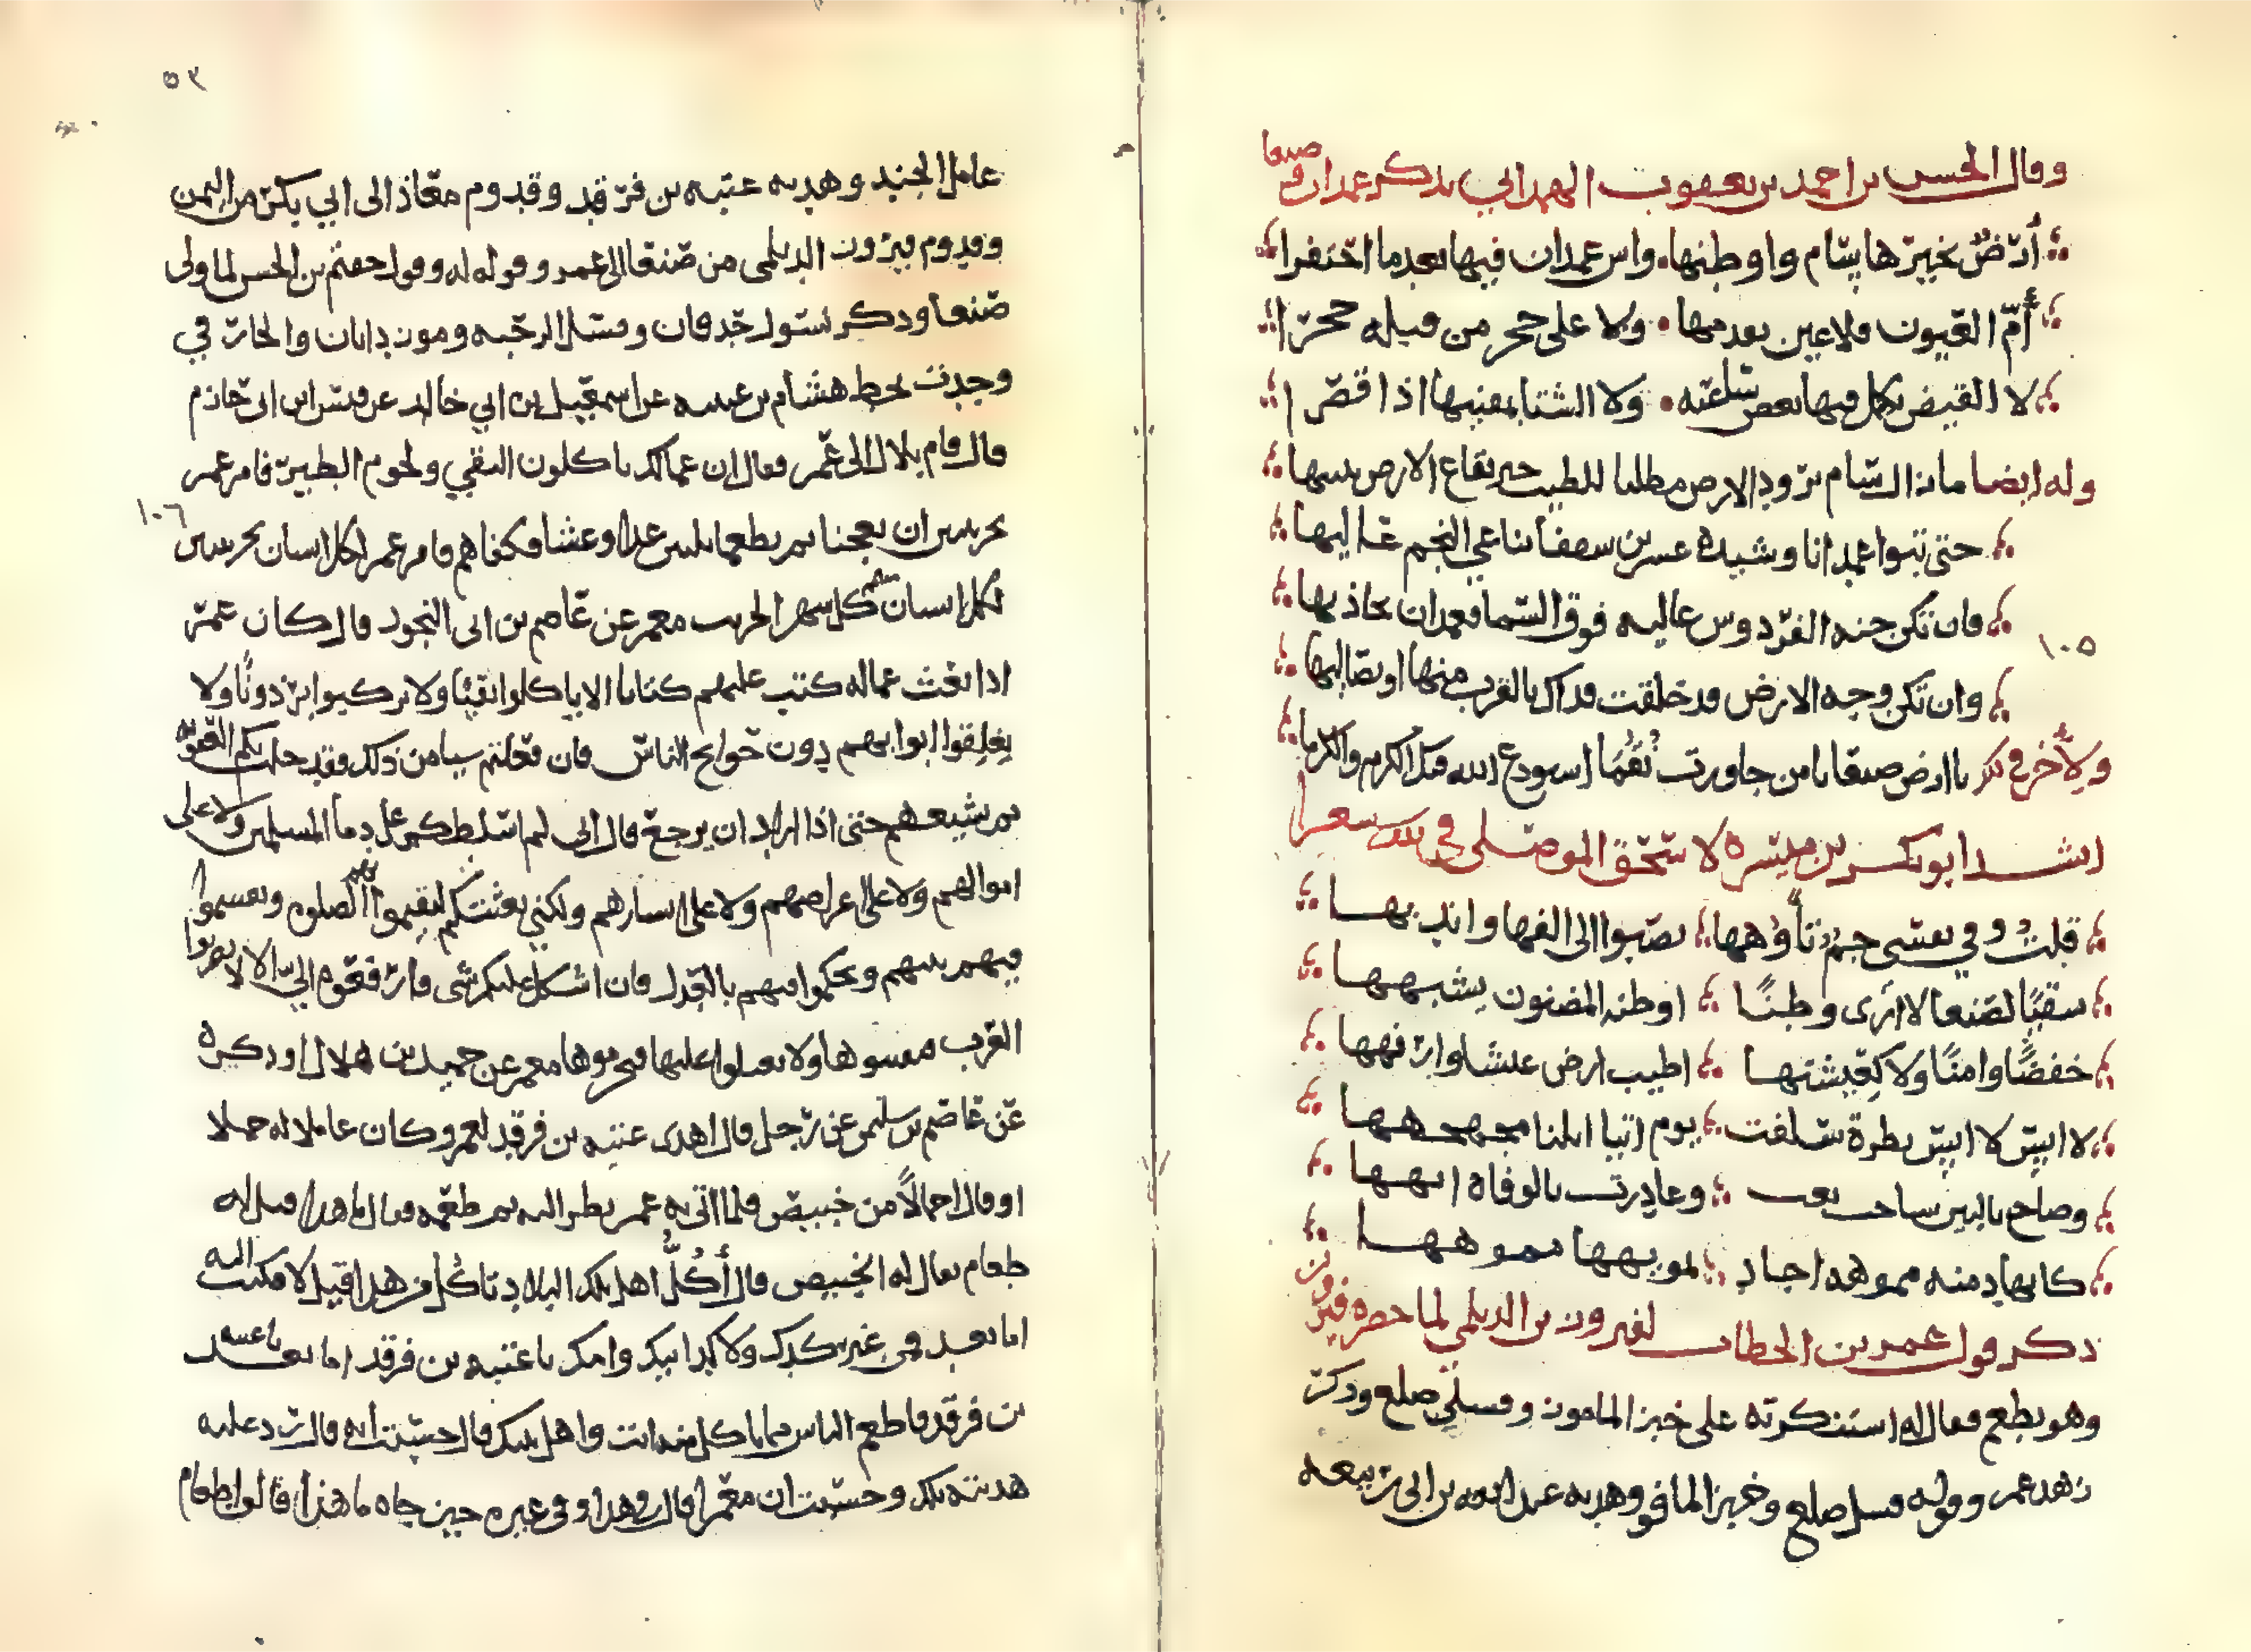 وقال الحسن بن احمد بن يعقوب الهمداني يذكر غمدان وصنعا
أرض تخيرها سام واوطنها واس غمدان فيها بعد ما احتفرا
أم العيون فلا عين تقدمها ولا على حجر من قبله حجرا
لا القيض يكمل فيها بعض ساعته ولا الشتا يمسيها اذا قصرا
وله ايضا ما زال سام يرود الارض مطلبا للطيب خير بقاع الارض يبنيها
حتى تبوا غمدانا وشيده عشرين سقفا يناغي النجم عاليها
فان تكن جنه الفردوس عاليه فوق السما فغمدان يحاذيها
١٠٥
وان تكن وجه الارض قد خلقت فذاك بالقرب منها او يصاليها
ولآخر في ذلك يا ارض صنعا يا من جاورت نقما استودع الله فيك الكرم والكرما
انشد ابو بكر بن ميسره لاسحق الموصلي في ذلك شعرا
قلت وفي نفسي جم تأوهها تصبوا الى الفها واندبها
سقيا لصنعا لا أرى وطنا اوطنه المضنون يشبهها
خفضا وامنا ولا كعيشتها اطيب ارض عيشا وارفهها
لا ابيس لا ابيس بطرة سلفت يوم اتيا ابلنا مجهجهها
وصاح بالبين ساحب نعب وغادرت بالوفاه ابهها
كانها دمنه مموهه اجاد تمويهها مموهها
ذكر قول عمر بن الخطاب لفيروز بن الديلمي لما حضره فيروز
وهو يطعم فقال له استنكرته على خبز المامون وفسلي صلع وذكر
زهد عمر وقوله فسل صلع وخبز المافو وهديه عبد الله بن ابي ربيعه
٥٣
عامل الجند وهديه عتبه بن فرقد وقدوم معاذ الى ابي بكر من اليمن
وقدوم فيروز الديلمي من صنعا الى عمر وقوله له وقول حفتم بن الحسن لما ولي
صنعا وذكر نسول خدفان وفسل الرحبه وموز داتان والحار في
وجدت بخط هشام بن عنبسه عن اسمعيل بن ابي خالد عن قيس ابن ابي حازم
قال قام بلال الى عمر فقال ان عمالك يا كلون النقي ولحوم الطير فامر عمر
١٠٦
بجريبين ان يعجنا ثم يطعما ثلثين غداً وعشا فكفاهم فامر عمر لكل انسان بجريبين
لكل انسان منهم كل شهر الحريب معمر عن عاصم بن ابي النجود قال كان عمر
اذا بعث عماله كتب عليهم كتابا الا ياكلوا نقيا ولا يركبوا برذونا ولا
يغلقوا ابوابهم دون حوايج الناس فان فعلتم شيا من ذلك فقد حلت بكم العقوبه
ثم يشيعهم حتى اذا اراد ان يرجع قال اني لم اسلطكم على دما المسلمين ولا على
اموالهم ولا على اعراضهم ولا على ابشارهم ولكني بعثتكم لتقيموا بهم الصلوه وتقسموا
فيهم فيهم وتحكموا فيهم بالعدل فان اشكل عليكم شي فارفعوه الي الا لا تضربوا
العرب فتفتنوها ولا تعتلوا عليها فتحرموها معمر عن حميد بن هلال او ذكره
عن عاصم بن سليمن عن رجل قال اهدى عتبه بن فرقد لعمر وكان عاملا له حملا
او قال احمالا من خبيص فلما اتى به عمر نظر اليه ثم طعمه فقال ما هذا قيل له
طعام يقال له الخبيص قال أكل اهل تلك البلاد تاكل من هذا قيل لا فكتب اليه
اما بعد فمن غير كدك ولا كد ابيك وامك يا عتبه بن فرقد اما بعد يا عتبه
بن فرقد فاطعم الناس مما ياكل منه انت واهل بيتك قال حسبت انه قال رد عليه
هديته تلك وحسبت ان معمرا قال في هذا وفي غيره حين جاه ما هذا قالوا طعام